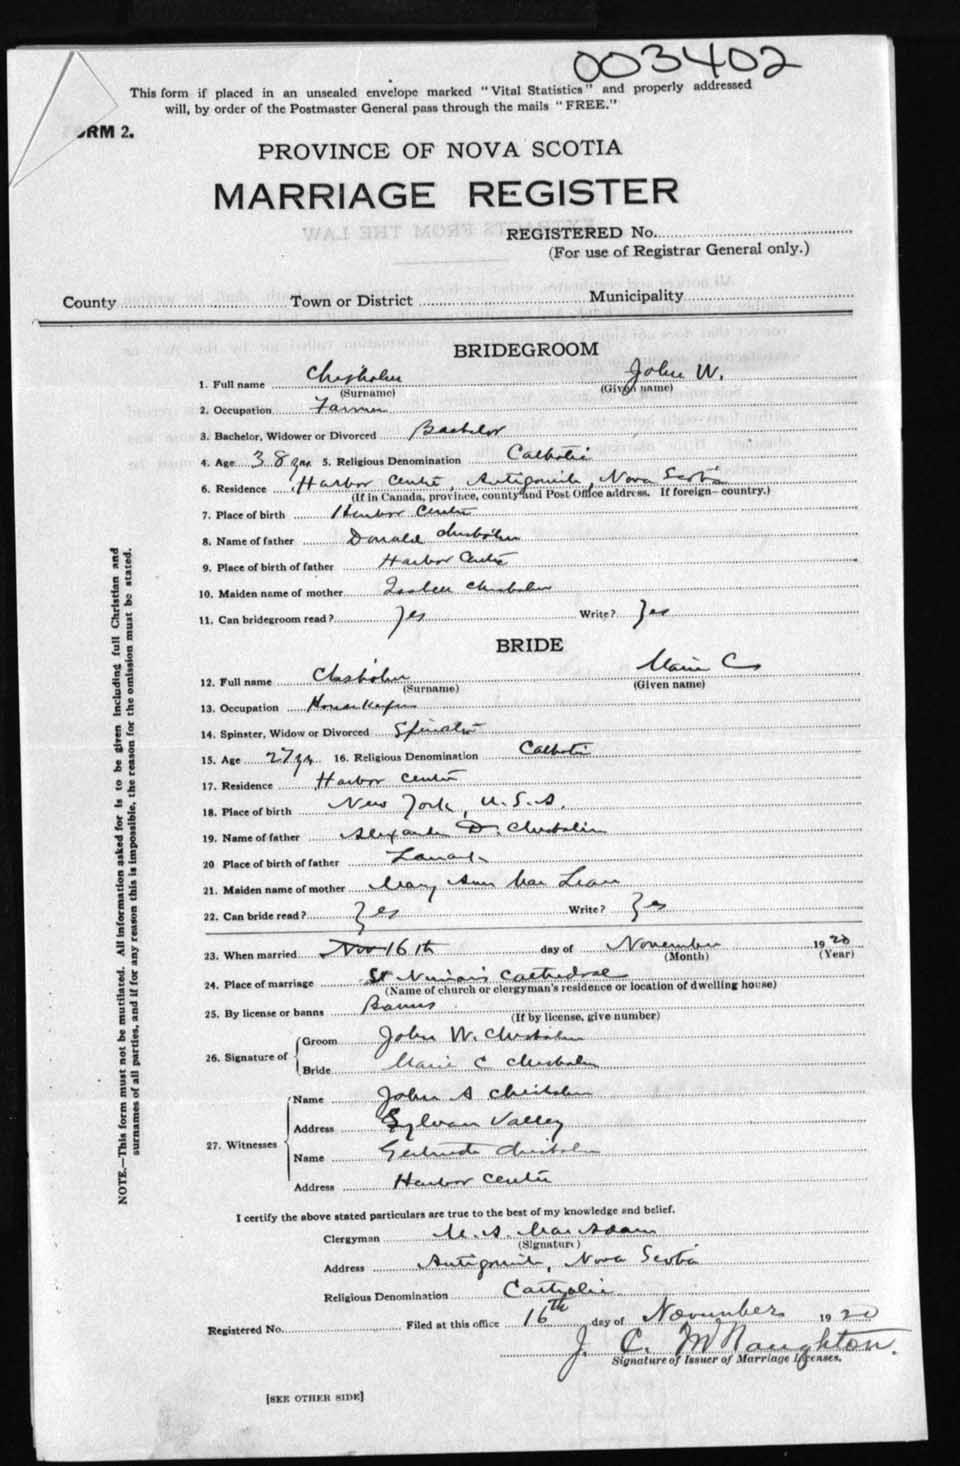 003402
This form if placed in an unsealed envelope marked "Vital Statistics" and properly addressed
will, by order of the Postmaster General pass through the mails "FREE."
FORM 2.
PROVINCE OF NOVA SCOTIA
MARRIAGE REGISTER
EXTRACTS FROM THE LAW
REGISTERED No.
(For use of Registrar General only.)
County Town or District Municipality
BRIDEGROOM
1. Full name Chisholm John W.
(Surname) (Given name)
2. Occupation Farmer
3. Bachelor, Widower or Divorced Bachelor
4. Age 38 yrs 5. Religious Denomination Catholic
6. Residence Harbor Centre, Antigonish, Nova Scotia
(If in Canada, province, county and Post Office address. If foreign—country.)
7. Place of birth Harbor Centre
8. Name of father Donald Chisholm
9. Place of birth of father Harbor Centre
10. Maiden name of mother Isabell Chisholm
11. Can bridegroom read? Yes Write? Yes
BRIDE
12. Full name Chisholm Marie C
(Surname) (Given name)
13. Occupation Housekeeper
14. Spinster, Widow or Divorced Spinster
15. Age 27 yrs 16. Religious Denomination Catholic
17. Residence Harbor Centre
18. Place of birth New York, U.S.A.
19. Name of father Alexander D. Chisholm
20 Place of birth of father Lanark
21. Maiden name of mother Mary Ann MacLean
22. Can bride read? Yes Write? Yes
23. When married Nov 16th day of November 1920
(Month) (Year)
24. Place of marriage St Ninian's Cathedral
(Name of church or clergyman's residence or location of dwelling house)
25. By license or banns Banns
(If by license, give number)
26. Signature of Groom John W. Chisholm
Bride Marie C Chisholm
27. Witnesses
Name John A Chisholm
Address Sylvan Valley
Name Gertrude Chisholm
Address Harbor Centre
I certify the above stated particulars are true to the best of my knowledge and belief.
Clergyman M. A. MacAdam
(Signature)
Address Antigonish, Nova Scotia
Religious Denomination Catholic
Registered No. Filed at this office 16th day of November 1920
J. C. McNaughton.
Signature of Issuer of Marriage Licenses.
[SEE OTHER SIDE]
NOTE.—This form must not be mutilated. All information asked for is to be given including full Christian and
surnames of all parties, and if for any reason this is impossible, the reason for the omission must be stated.